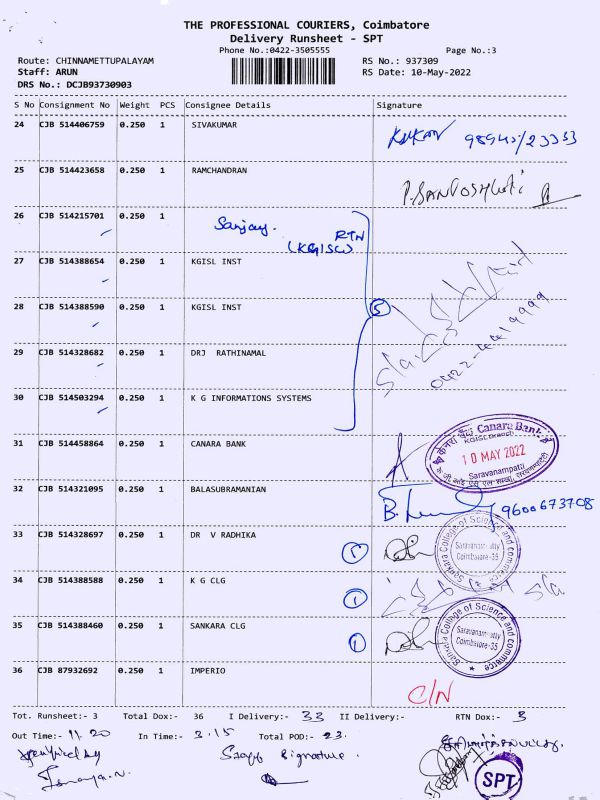 THE PROFESSIONAL COURIERS, Coimbatore
Delivery Runsheet - SPT
Phone No.:0422-3505555 Page No.:3
Route: CHINNAMETTUPALAYAM RS No.: 937309
Staff: ARUN RS Date: 10-May-2022
DRS No.: DCJB93730903
S No Consignment No Weight PCS Consignee Details Signature
24 CJB 514406759 0.250 1 SIVAKUMAR
25 CJB 514423658 0.250 1 RAMCHANDRAN
P. SANTOSH
26 CJB 514215701 0.250 1 Sanjay. RTN
(KGISL)
27 CJB 514388654 0.250 1 KGISL INST
28 CJB 514388590 0.250 1 KGISL INST 5
29 CJB 514328682 0.250 1 DRJ RATHINAMAL
30 CJB 514503294 0.250 1 K G INFORMATIONS SYSTEMS
31 CJB 514458864 0.250 1 CANARA BANK
Canara Bank
KGISL Branch
10 MAY 2022
Saravanampatti
32 CJB 514321095 0.250 1 BALASUBRAMANIAN 9600673708
33 CJB 514328697 0.250 1 DR V RADHIKA
Sankara College of Science and commerce
Saravanampatty
Coimbatore-35
34 CJB 514388588 0.250 1 K G CLG 1
35 CJB 514388460 0.250 1 SANKARA CLG 1
Sankara College of Science and commerce
Saravanampatty
Coimbatore-35
36 CJB 87932692 0.250 1 IMPERIO C/N
Tot. Runsheet:- 3 Total Dox:- 36 I Delivery:- 33 II Delivery:- RTN Dox:- 3
Out Time:- 11.20 In Time:- 3.15 Total POD:- 23.
Verified by Staff Signature.
SPT